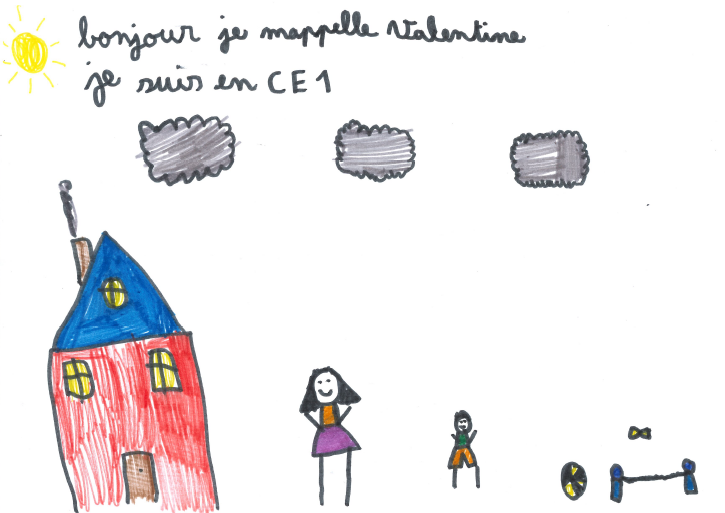 bonjour je mappelle Valentine
je suis en CE1